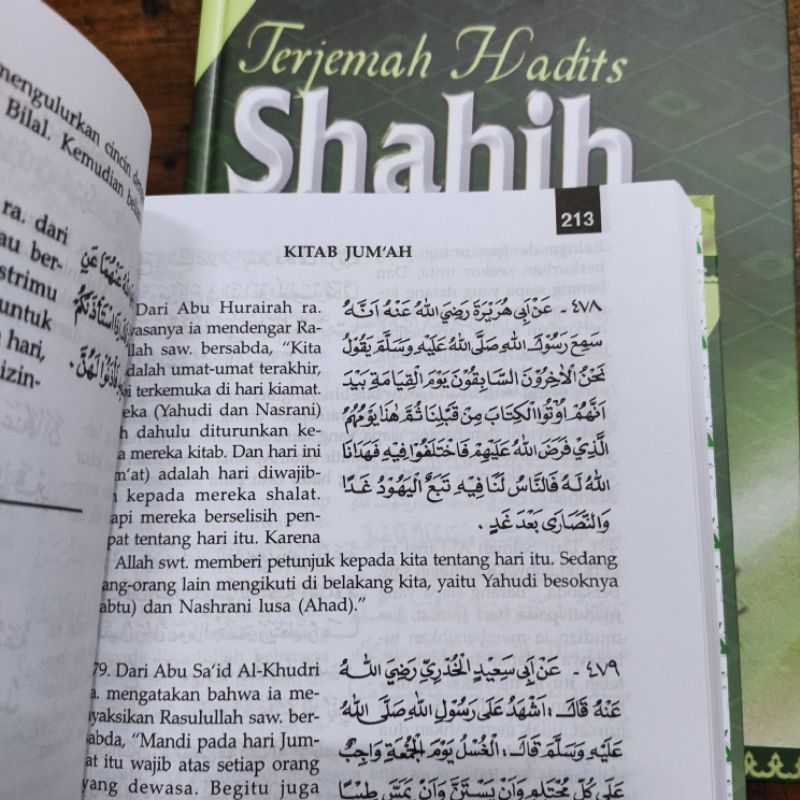 Terjemah Hadits
Shahih
mengulurkan cincin
Bilal. Kemudian
ra. dari
au ber-
strimu
untuk
hari,
izin-
213
KITAB JUM'AH
Dari Abu Hurairah ra.
wasanya ia mendengar Ra-
llah saw. bersabda, “Kita
dalah umat-umat terakhir,
pi terkemuka di hari kiamat.
eka (Yahudi dan Nasrani)
h dahulu diturunkan ke-
a mereka kitab. Dan hari ini
m'at) adalah hari diwajib-
n kepada mereka shalat.
api mereka berselisih pen-
pat tentang hari itu. Karena
Allah swt. memberi petunjuk kepada kita tentang hari itu. Sedang
ang-orang lain mengikuti di belakang kita, yaitu Yahudi besoknya
abtu) dan Nashrani lusa (Ahad).”
٤٧٨ - عَنْ أَبِي هُرَيْرَةَ رَضِيَ اللهُ عَنْهُ اَنَّهُ
سَمِعَ رَسُوْلَ اللهِ صَلَّى اللهُ عَلَيْهِ وَسَلَّمَ يَقُوْلُ
نَحْنُ الْآخِرُوْنَ السَّابِقُوْنَ يَوْمَ الْقِيَامَةِ بَيْدَ
اَنَّهُمْ اُوْتُوا الْكِتَابَ مِنْ قَبْلِنَا ثُمَّ هٰذَا يَوْمُهُمُ
الَّذِيْ فَرَضَ اللهُ عَلَيْهِمْ فَاخْتَلَفُوْا فِيْهِ فَهَدَانَا
اللهُ لَهُ فَالنَّاسُ لَنَا فِيْهِ تَبَعٌ الْيَهُوْدُ غَدًا
وَالنَّصَارَى بَعْدَ غَدٍ .
79. Dari Abu Sa'id Al-Khudri
a. mengatakan bahwa ia me-
yaksikan Rasulullah saw. ber-
abda, “Mandi pada hari Jum-
at itu wajib atas setiap orang
yang dewasa. Begitu juga
٤٧٩ - عَنْ أَبِي سَعِيْدٍ الْخُدْرِيِّ رَضِيَ اللهُ
عَنْهُ قَالَ : اَشْهَدُ عَلَى رَسُوْلِ اللهِ صَلَّى اللهُ
عَلَيْهِ وَسَلَّمَ قَالَ : الْغُسْلُ يَوْمَ الْجُمُعَةِ وَاجِبٌ
عَلَى كُلِّ مُحْتَلِمٍ وَاَنْ يَسْتَنَّ وَاَنْ يَمَسَّ طِيْبًا